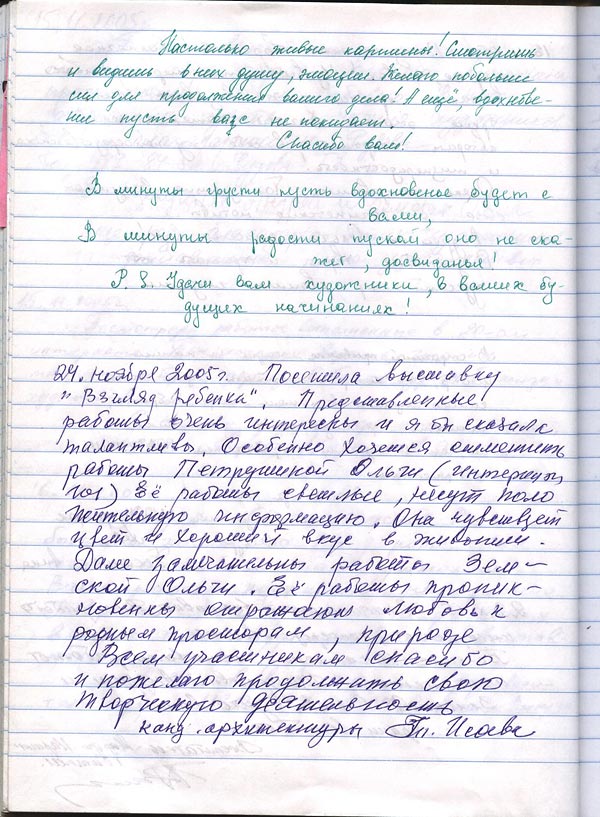 Настолько живые картины! Смотришь
и видишь в них душу, эмоции. Желаю побольше
сил для продолжения вашего дела! А ещё вдохнове-
ние пусть вас не покидает.
Спасибо вам!
В минуты грусти пусть вдохновенье будет с
вами,
В минуты радости пускай оно не ска-
жет, досвиданья!
P. S. Удачи вам художники, в ваших бу-
дущих начинаниях!
24. ноября 2005г. Посетила выставку
"Взгляд ребенка". Представленные
работы очень интересны и я бы сказала
талантливы. Особенно хочется отметить
работы Петрушиной Ольги (интерпрт
) Её работы светлые, несут поло
жительную информацию. Она чувствует
цвет и хороший вкус в живописи.
Далее замечательны работы Зем-
ской Ольги. Её работы проник-
новенны отражают любовь к
родным просторам, природе
Всем участникам спасибо
и пожелаю продолжить свою
творческую деятельность
канд. архитектуры Исаева